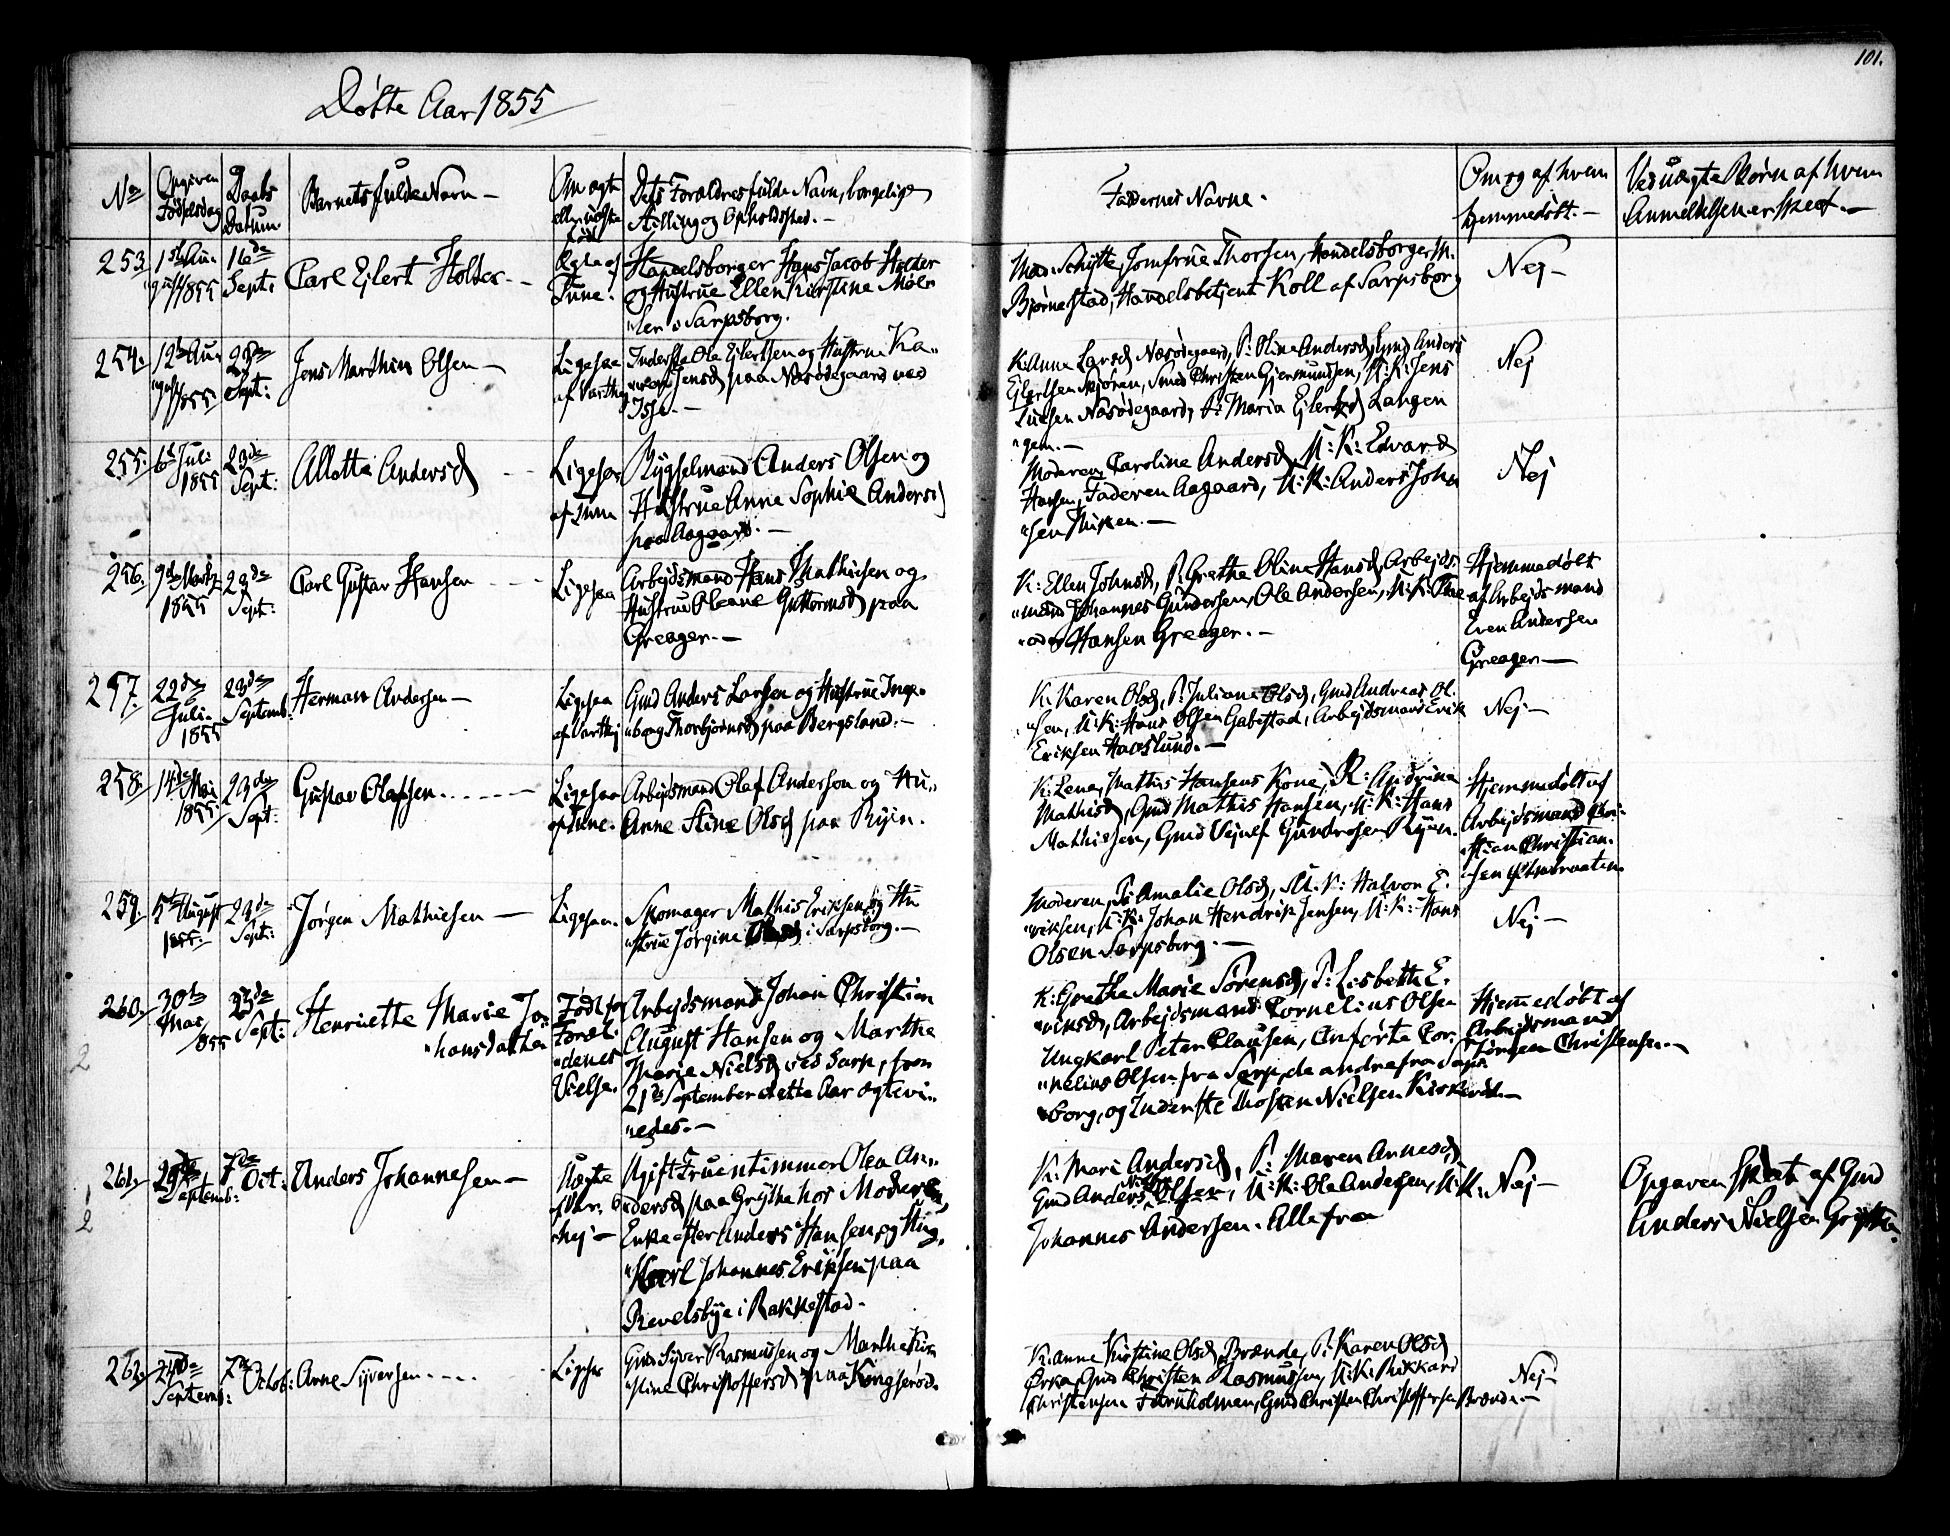 101.
Døbte Aar 1855
No
Opgiven
Fødselsdag
Daabs
Datum
Barnets fulde Navn -
Om ægte
eller uægte
født
Dets Forældres fulde Navn, borgelige
Stilling og Opholdssted. -
Faddernes Navne.
Om og af hvem
hjemmedøbt. -
Ved uægte Børn af hvem
Anmeldelsen er skeet. -
253
1ste Au-
gust 1855
16de
Sept:
Carl Ejlert Holter - -
Ægte af
Tune.
Handelsborger Hans Jacob Holter
og Hustrue Ellen Kirstine Møl-
"ler i Sarpsborg.
Mad. Schytte, Jomfrue Thorsen, Handelsborger M.
Bjørnestad, Handelsbetjent Koll af Sarpsborg
Nej -
254.
12te Au-
"gust 1855
23de
Sept:
Jens Marthin Olsen -
Ligesaa
af Varteig
Inderste Ole Ejlertsen og Hustrue Ka-
"ren Jensd paa Næsødegaard ved
Ise. -
K: Anne Larsd Næsødegaard, P: Oline Andersd, Gmd Anders
Ejlertsen Skjøren, Smed Christen Gjermundsen, U: K: Jens
Næsødegaard, P: Maria Ejlertsd Langen
"gen. -
Nej
255.
6te Juli
1855
23de
Sept:
Allotta Andersd - -
Ligesaa
af Tune
Rygselmand Anders Olsen og
Hustrue Anne Sophie Andersd
paa Aagaard. -
Moderen, Caroline Andersd, U: K: Edvard
Hansen, Faderen Aagaard, U: K: Anders Johan
"sen -
Nej
256.
9de Marts
1855
23de
Sept:
Carl Gustav Hansen - - -
Ligesaa
Arbejdsmand Hans Mathiesen og
Hustrue Oleane Guttormsd paa
Greager. -
K: Ellen Johnsd, P: Grethe Oline Hansd, Arbejds-
"mænd Johannes Gundersen, Ole Andersen, U: K: The
"odor Hansen Greager. -
Hjemmedøbt
af Arbejdsmand
Even Andersen
Greager -
257.
22de
Juli
1855
23de
Septemb:
Herman Andersen -
Ligesaa
af Varteig
Gmd Anders Larsen og Hustrue Inge-
"borg Thorbjørnsd paa Bergsland. -
K: Karen Olsd, P: Juliane Olsd, Gmd Andreas Ol-
"sen, U: K: Hans Olsen Gabestad, Arbejdsmand Erik
Eriksen Haveslund. -
Nej -
258
14de Mai
1855
23de
Sept:
Gustav Olafsen. - - - -
Ligesaa
af Tune.
Arbejdsmand Olaf Anderson og Hu-
Anne Stine Olsd paa Ryen.
K: Lena, Mathis Hansens Kone, P: Andrine
Mathisd, Gmd Mathis Hansen, U: K: Hans
Mathiesen, Gmd Gundrosen Ryen.
Hjemmedøbt af
Arbejdsmand Chri-
"stian Christian-
"sen
259.
5te August
1855.
23de
Sept:
Jørgen Mathiesen -
Ligesaa.
Skomager Mathis Eriksen og Hu
"strue Jørgine Olsd i Sarpsborg. -
Moderen, P: Amalie Olsd, U. K: Halvor E-
"riksen, U: K: Johan Hendrik Jensen, U: K: Hans
Olsen Sarpsborg. -
Nej -
260.
30te
Mai
1855
23de
Sept:
Henriette Marie Jo-
"hansdatter
Født før
Foræl-
"drenes
Vielse.
Arbejdsmand Johan Christian
August Hansen og Marthe
Marie Nielsd ved Sarp, som
21de September dette Aar ægtevi-
"edes. -
K: Grethe Marie Sørensd, P: Lisbeth E-
"riksd, Arbejdsmand Cornelius Olsen
Ungkarl Peter Clausen, Anførte Cor-
"nelius Olsen fra Sarp, de andre fra Sarps-
"borg, og Inderste Thosten Nielsen Kirkerød. -
Hjemmedøbt af
Arbejdsmand
Jørgen Christensen. -
2
261.
29de
Septemb:
7de
Oct:
Anders Johannesen -
Uægte
af Var-
teig -
Ugift Fruentimmer Olea An-
"dersd paa Grytha hos Moderen,
Enke efter Anders Hansen, og Ung-
"karl Johannes Eriksen paa
Revelsbye i Rakkestad.
K: Mari Andersd, P: Maren Arnesd,
Gmd Anders Nielsen, U: K: Ole Andersen, U: K:
Johannes Andersen. Alle fra
Nej -
Opgaven skeet af Gmd
Anders Nielsen Grytha.
2
262.
24de
Septemb:
7de
Octob:
Arne Syversen. - - -
Ligesaa
Gmd Syver Rasmussen og Marthe Kir-
"stine Christoffersd paa Kongsrød.
K: Anne Kirstine Olsd Brænde, P: Karen Olsd
Ørka, Gmd Christen Rasmussen, U: K: Rikkard
Christensen Furuholmen, Gmd Christen Christoffersen Brænde. -
Nej -